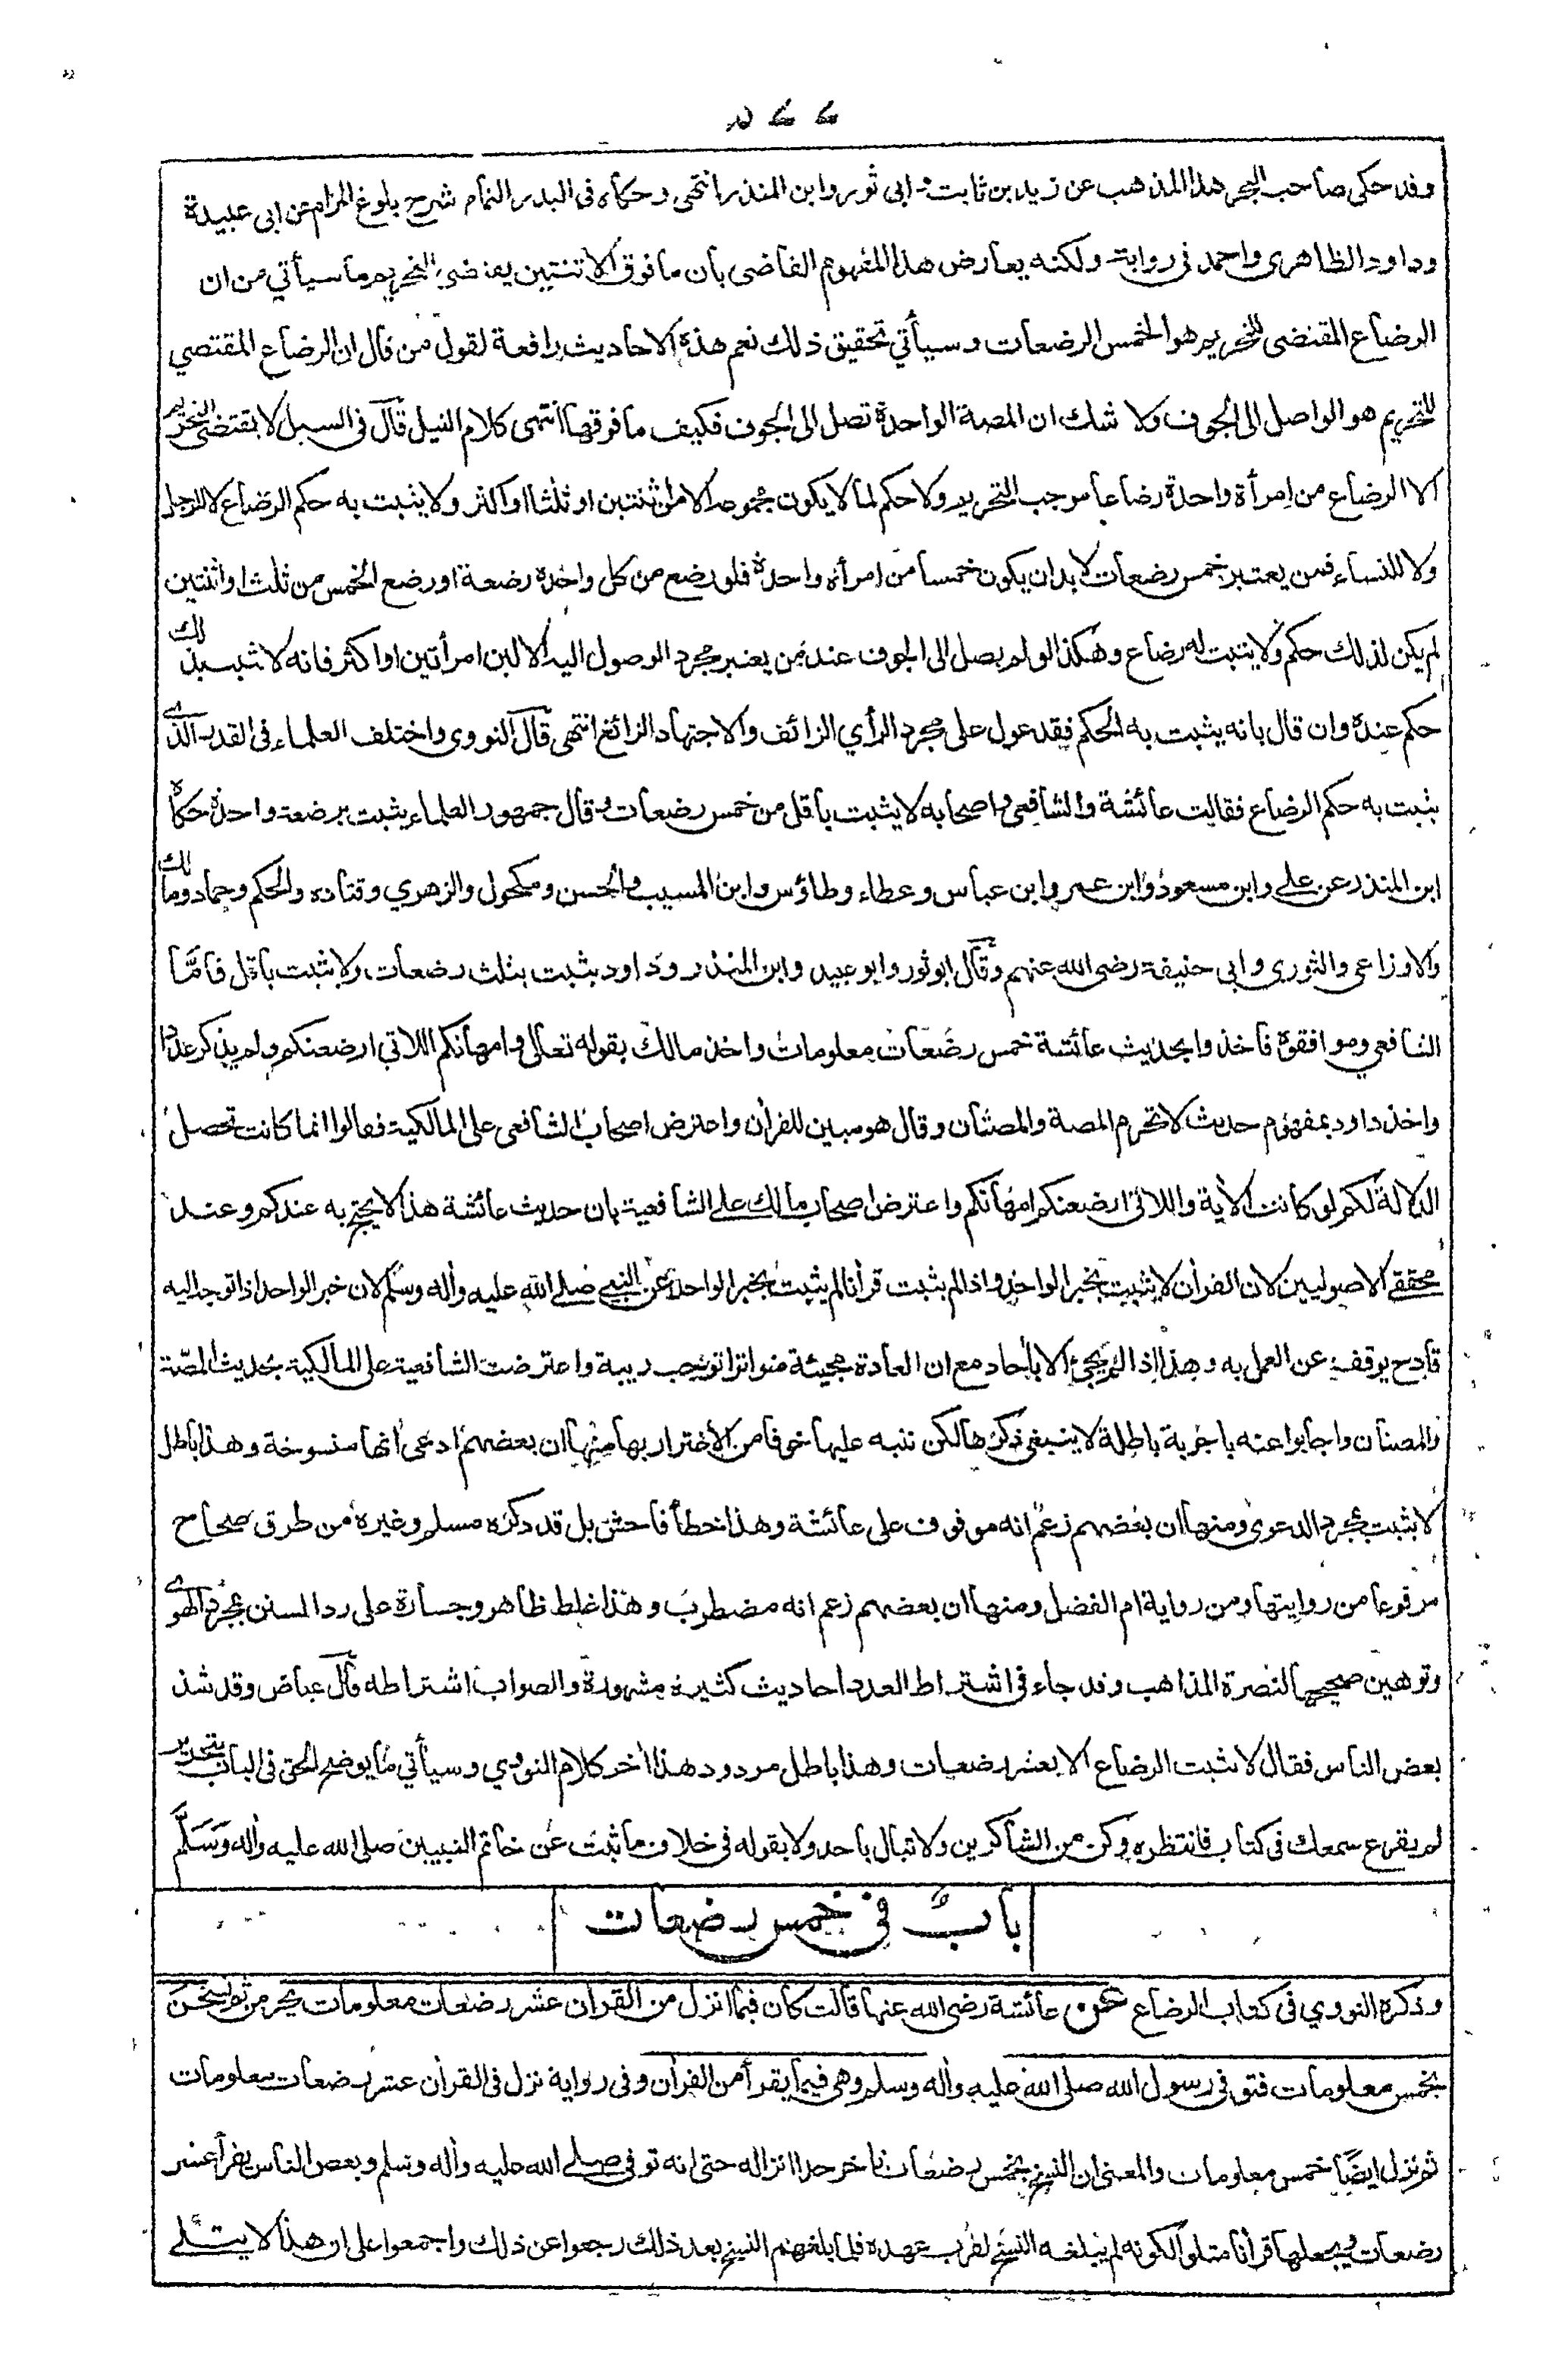 وقد حكى صاحب البحر هذا المذهب عن زيد بن ثابت و ابى ثور وابن المنذر انتهى وحكاه فى البدر التمام شرح بلوغ المرام عن ابى عبيدة
وداود الظاهرى واحمد فى رواية ولكنه يعارض هذا المفهوم القاضى بان ما فوق الاثنتين يقتضى التحريم ما سيأتي من ان
الرضاع المقتضى للتحريم هو الخمس الرضعات وسيأتي تحقيق ذلك نعم هذه الاحاديث دافعة لقول من قال ان الرضاع المقتضي
للتحريم هو الواصل الى الجوف ولا شك ان المصة الواحدة تصل الى الجوف فكيف ما فوقها انتهى كلام النيل قال فى السبل لا يقتضى التحريم
الا الرضاع من امرأة واحدة رضاعا موجب التحريم ولا حكم لما لا يكون مجموعه الا من ثنتين او ثلثا او اكثر ولا يثبت به حكم الرضاع لا للرجل
ولا للنساء فمن يعتبر خمس رضعات لا بد ان يكون خمسا من امرأة واحدة فلو رضع من كل واحدة رضعة او رضع الخمس من ثلث او اثنتين
لم يكن لذلك حكم ولا يثبت له رضاع وهكذا لو لم يصل الى الجوف عند من يعتبر مجرد الوصول اليه الا لبن امرأتين او اكثر فانه لا يثبت بذلك
حكم عنده وان قال بانه يثبت به الحكم فقد عول على مجرد الرأي الزائف والاجتهاد الزائغ انتهى قال النووى واختلف العلماء فى القدر الذى
يثبت به حكم الرضاع فقالت عائشة والشافعى واصحابه لا يثبت باقل من خمس رضعات وقال جمهور العلماء يثبت برضعة واحدة حكاه
ابن المنذر عن على وابن مسعود وابن عمر وابن عباس وعطاء وطاؤس وابن المسيب والحسن ومكحول والزهري وقتادة والحكم وحماد ومالك
والاوزاعى والثوري وابى حنيفة رضى الله عنهم وقال ابو ثور وابو عبيد وابن المنذر وداود يثبت بثلث رضعات ولا يثبت باقل فامّا
الشافعي وموافقوه فاخذوا بحديث عائشة خمس رضعات معلومات واخذ مالك بقوله تعالى وامهاتكم اللاتي ارضعنكم ولم يذكر عددا
واخذ داود بمفهوم حديث لا تحرم المصة والمصتان وقال هو مبين للقرآن واعترض اصحاب الشافعى على المالكية فقالوا انما كانت تحصل
الدلالة لكم لو كانت الآية واللاتى ارضعنكم امهاتكم واعترض اصحاب مالك على الشافعية بان حديث عائشة هذا لا يحتج به عندكم وعند
محققي الاصوليين لان القرآن لا يثبت بخبر الواحد واذا لم يثبت قرآنا لم يثبت بخبر الواحد عن النبي صلى الله عليه وآله وسلم لان خبر الواحد اذا توجه اليه
قادح يوقف عن العمل به وهذا اذا لم يجئ الا بآحاد مع ان العادة مجيئه متواترا توجب ريبة واعترضت الشافعية على المالكية بحديث المصّة
والمصتان واجابوا عنه باجوبة باطلة لا ينبغى ذكرها لكن ننبه عليها خوفا من الاغترار بها منها ان بعضهم ادعى انها منسوخة وهذا باطل
لا يثبت بمجرد الدعوى ومنها ان بعضهم زعم انه موقوف على عائشة وهذا خطأ فاحش بل قد ذكره مسلم وغيره من طرق صحاح
مرفوعا من روايتها ومن رواية ام الفضل ومنها ان بعضهم زعم انه مضطرب وهذا غلط ظاهر وجسارة على رد السنن بمجرد الهوى
وتوهين صحيحها لنصرة المذاهب وقد جاء فى اشتراط العدد احاديث كثيرة مشهورة والصواب اشتراطه قال عياض وقد شذ
بعض الناس فقال لا يثبت الرضاع الا بعشر رضعات وهذا باطل مردود هذا آخر كلام النووي وسيأتي ما يوضح الحق فى الباب بتحرير
لم يقرع سمعك فى كتاب فانتظره وكن من الشاكرين ولا تبال باحد ولا بقوله فى خلاف ما ثبت عن خاتم النبيين صلى الله عليه وآله وسَلَّم
باب فى خمس رضعات
وذكره النووي فى كتاب الرضاع عن عائشة رضى الله عنها قالت كان فيما انزل من القرآن عشر رضعات معلومات يحرمن ثم نسخن
بخمس معلومات فتوفى رسول الله صلى الله عليه وآله وسلم وهى فيما يقرأ من القرآن وفى رواية نزل فى القرآن عشر رضعات معلومات
ثم نزل ايضًا خمس معلومات والمعنى ان النسخ بخمس رضعات تاخر جدا انزاله حتى انه توفى صلى الله عليه وآله وسلم وبعض الناس يقرأ عشر
رضعات ويجعلها قرآنا متلوا لكونه لم يبلغه النسخ لقرب عهده فلما بلغهم النسخ بعد ذلك رجعوا عن ذلك واجمعوا على ان هذا لا يتلى